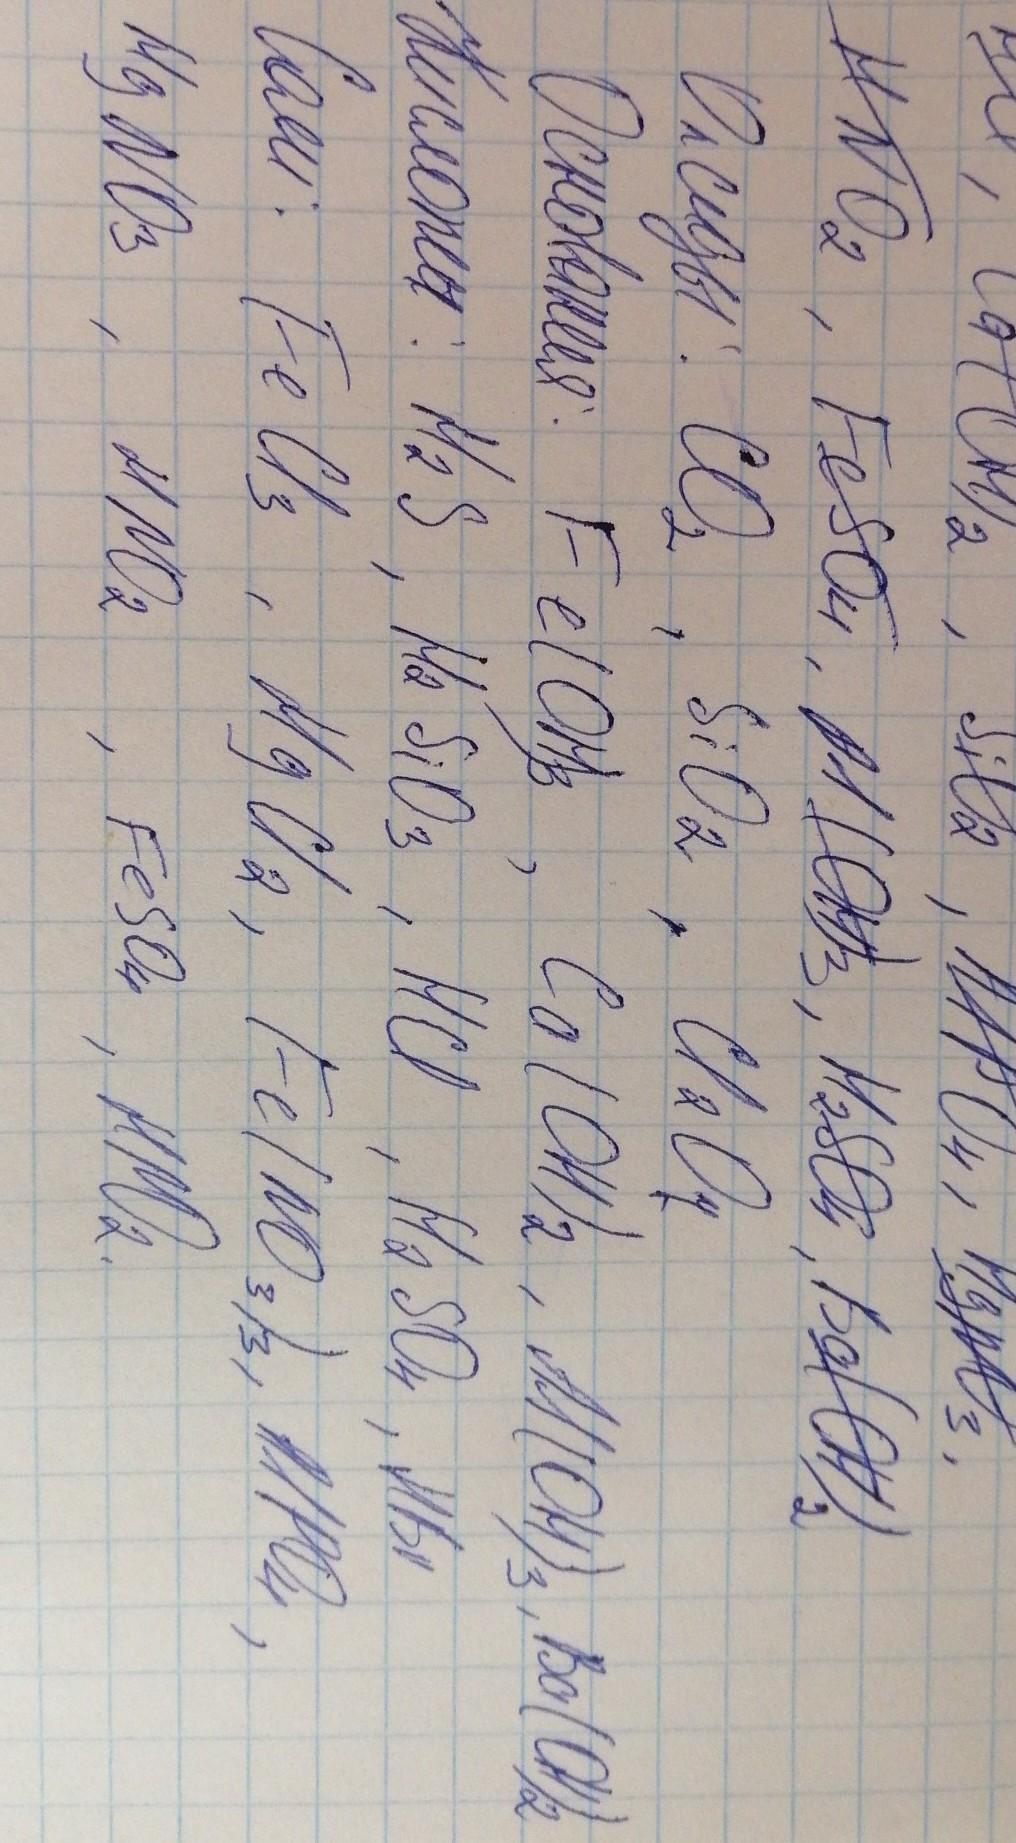 Ca(OH)2, SiO2, AlPO4, MgNO3,
HNO2, FeSO4, Al(OH)3, H2SO4, Ba(OH)2
Оксиды: CO2, SiO2, Cl2O7
Основания: Fe(OH)3, Ca(OH)2, Al(OH)3, Ba(OH)2
Кислоты: H2S, H2SiO3, HCl, H2SO4, HBr
Соли: FeCl3, MgCl2, Fe(NO3)3, AlPO4,
MgNO3, HNO2, FeSO4, HNO2.